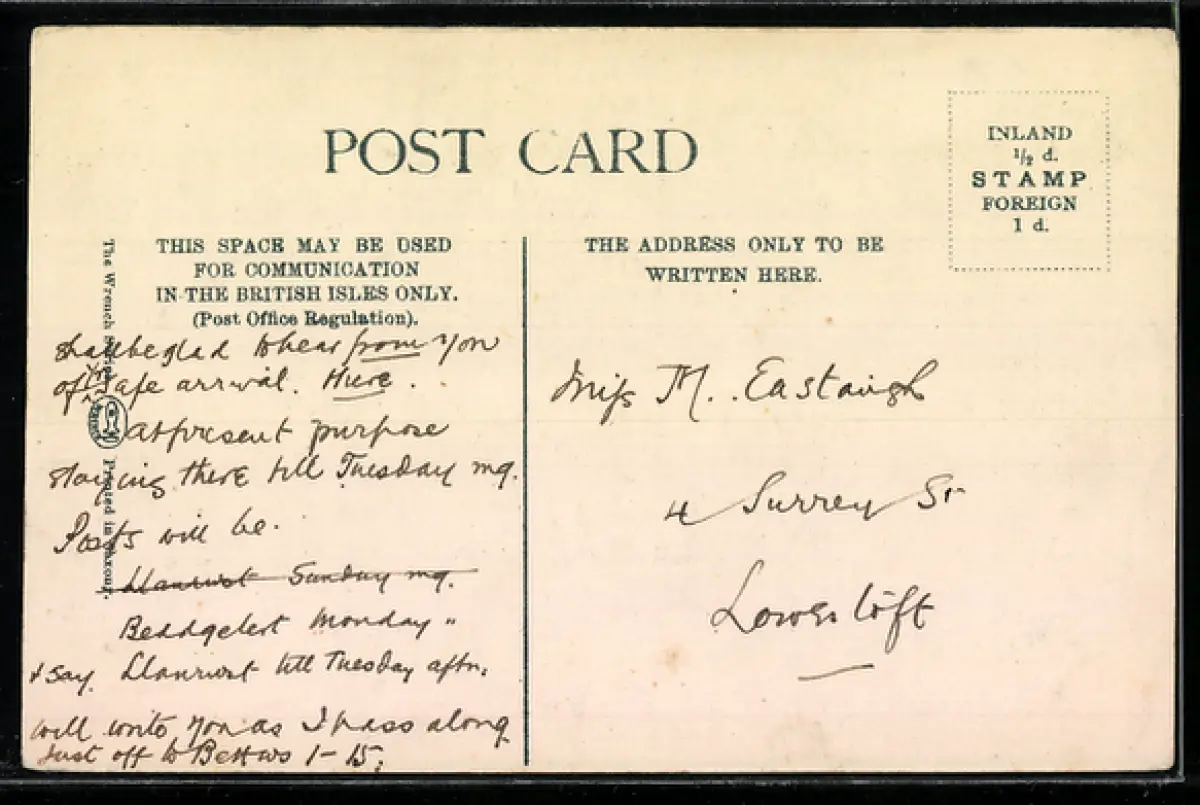 POST CARD
INLAND
½ d.
STAMP
FOREIGN
1 d.
THIS SPACE MAY BE USED
FOR COMMUNICATION
IN THE BRITISH ISLES ONLY.
(Post Office Regulation).
THE ADDRESS ONLY TO BE
WRITTEN HERE.
The Wrench
Printed in Saxony.
Shall be glad to hear from you
of yr safe arrival.
at present purpose
staying there till Tuesday mg.
Posts will be.
Llanrwst Sunday mg.
Beddgelert Monday "
& say Llanrwst till Tuesday aftn.
will write you as I pass along
Just off to Bettws 1-15.
Miss M. Eastaugh
4 Surrey St
Lowestoft